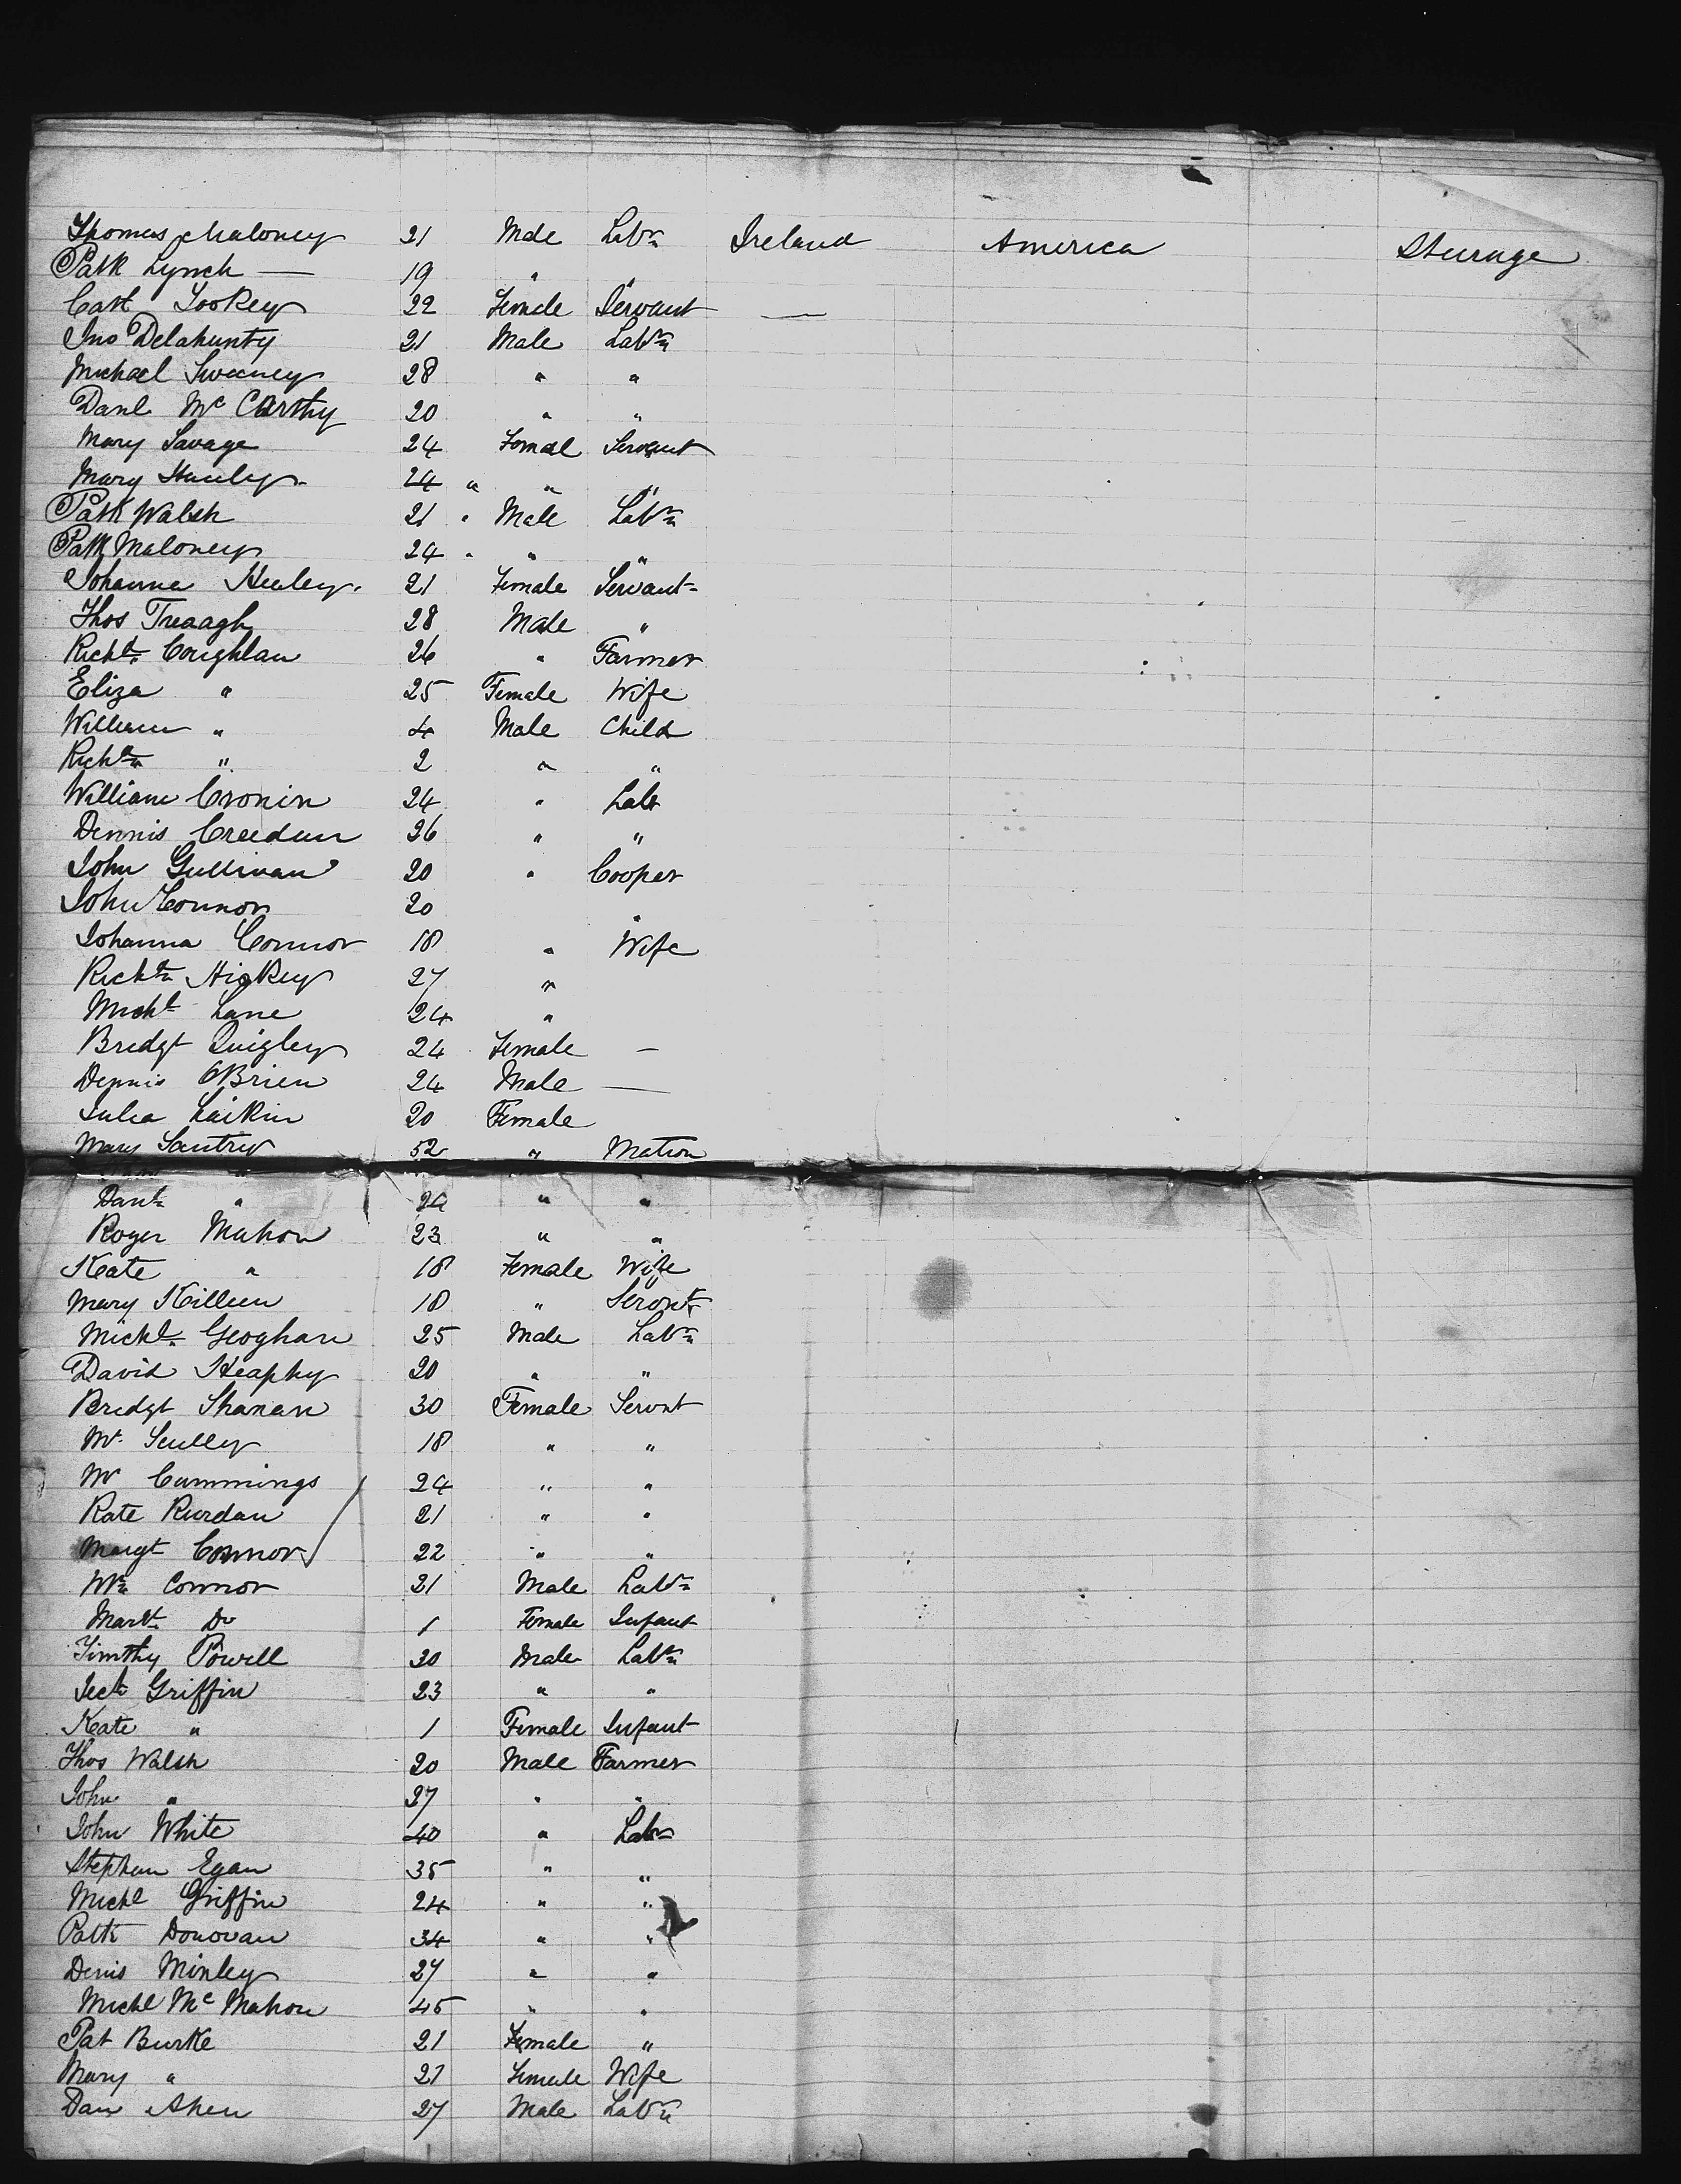 Thomas Maloney 21 Male Labr Ireland America Steerage
Patk Lynch — 19 " "
Cath Tookey 22 Female Servant —
Jno Delahunty 21 Male Labr
Michael Sweeney 28 " "
Danl Mc Carthy 20 " "
Mary Savage 24 Femal Servant
Mary 24 " " "
Patk Walsh 21 " Male Labr
Patk Maloney 24 " " "
Johanna Heeley 21 Female Servant
Thos Treaagh 28 Male "
Richd Coughlan 26 " Farmer
Eliza " 25 Female Wife
William " 4 Male Child
Richd " 2 " "
William Cronin 24 " Labr
Dennis Creedun 26 " "
John Sullivan 20 " Cooper
John Connor 20 "
Johanna Connor 18 " Wife
Richd Hickey 27 "
Michl Lane 24 "
Bridgt Quigley 24 Female —
Dennis OBrien 24 Male —
Julia Laikin 20 Female
Mary Santry 52 " Matron
Danl " 24 " "
Roger Mahon 23 " "
Kate " 18 Female Wife
Mary Killeen 18 " Servnt
Michl Geoghan 25 Male Labr
David Heaphy 20 " "
Bridgt Shanan 30 Female Servnt
Mt Scully 18 " "
M Cummings 24 " "
Kate Riordan 21 " "
Margt Connor 22 " "
Wm Connor 21 Male Labr
Markt Do 1 Female Infant
Timthy Powell 30 Male Labr
Griffin 23 " "
Kate " 1 Female Infant
Thos Walsh 20 Male Farmer
John " 27 " "
John White 40 " Labr
Stephen Egan 35 " "
Michl Griffin 24 " "
Patk Donovan 34 " "
Denis Minley 27 " "
Michl Mc Mahon 45 " "
Pat Burke 21 Female "
Mary " 21 Female Wife
Dan Ahen 27 Male Labr